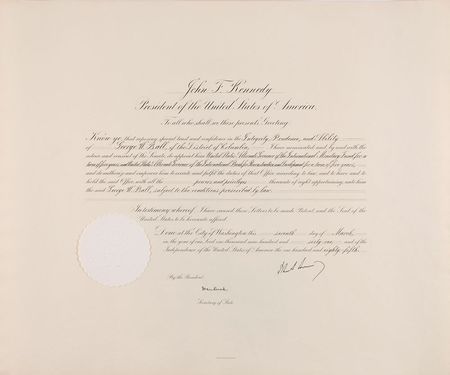 John F. Kennedy
President of the United States of America.
To all who shall see these presents, Greeting:
Know ye, that reposing special trust and confidence in the Integrity, Prudence, and Ability
of George W. Ball, of the District of Columbia, I have nominated and, by and with the
advice and consent of the Senate, do appoint him United States Alternate Governor of the International Monetary Fund for a
term of five years and United States Alternate Governor of the International Bank for Reconstruction and Development for a term of five years, and
do authorize and empower him to execute and fulfil the duties of that Office according to law, and to have and to
hold the said Office, with all the powers and privileges thereunto of right appertaining, unto him
the said George W. Ball, subject to the conditions prescribed by law.
In testimony whereof, I have caused these Letters to be made Patent, and the Seal of the
United States to be hereunto affixed.
Done at the City of Washington this seventh day of March,
in the year of our Lord one thousand nine hundred and sixty-one and of the
Independence of the United States of America the one hundred and eighty-fifth.
By the President:
Dean Rusk
Secretary of State.